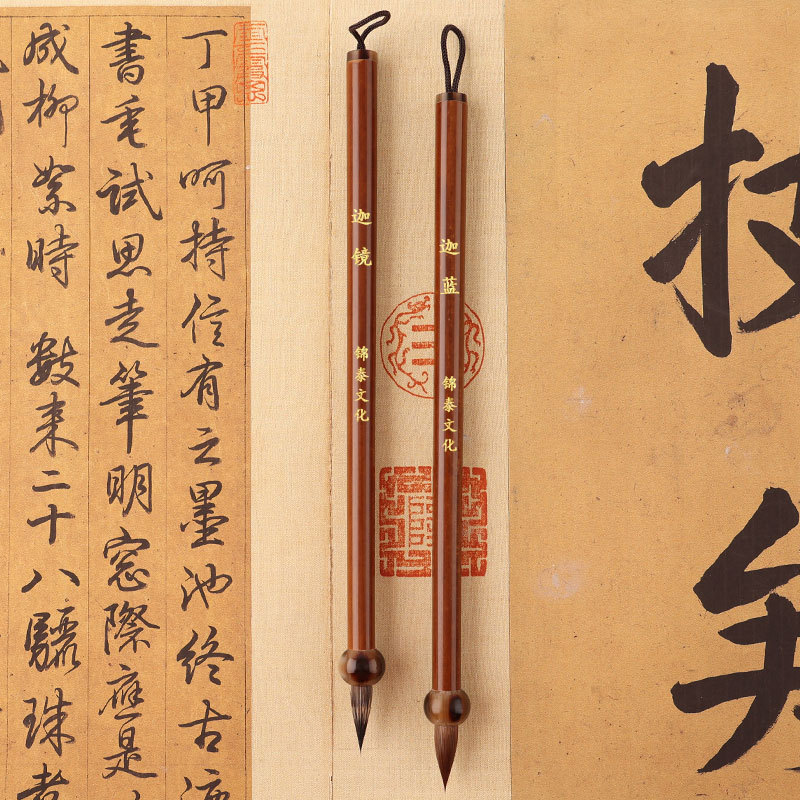 丁甲呵持信有之墨池终古
書毛試思走筆明窓際應是
成柳絮時 數来二十八驪珠
迦镜
锦泰文化
迦蓝
锦泰文化